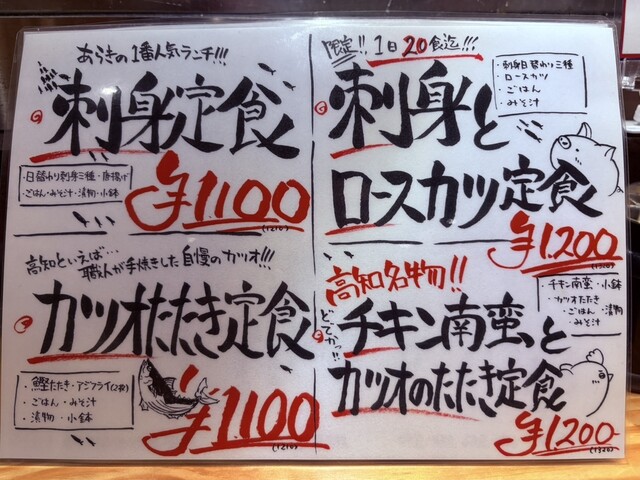 あらきの1番人気ランチ!!!
刺身定食
・日替わり刺身三種・唐揚げ
・ごはん・みそ汁・漬物・小鉢
¥1,100
(1210)
限定!! 1日20食迄!!!
刺身と
ロースカツ定食
・刺身日替わり三種
・ロースカツ
・ごはん
・みそ汁
¥1,200
(1320)
高知といえば…
職人が手焼きした自慢のカツオ!!!
カツオたたき定食
・鰹たたき・アジフライ(2枚)
・ごはん・みそ汁
・漬物・小鉢
¥1,100
(1210)
高知名物!!
どってかっ!!
チキン南蛮と
カツオのたたき定食
・チキン南蛮・小鉢
・カツオたたき
・ごはん・漬物
・みそ汁
¥1,200
(1320)